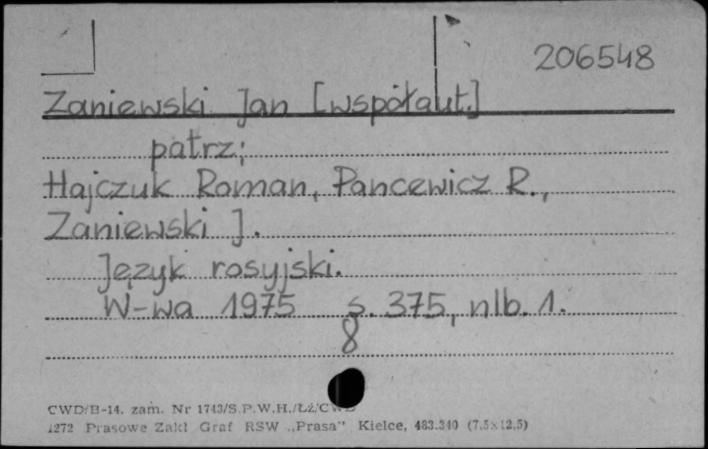 206548
Zaniewski Jan [współaut.]
patrz:
Hajczuk Roman, Pancewicz R.,
Zaniewski J.
Język rosyjski.
W-wa 1975 s. 375, nlb. 1.
8
CWD/B-14. zam. Nr 1743/S.P.W.H./ŁŻ/CWD
1272 Prasowe Zakł Graf RSW „Prasa" Kielce, 483.340 (7,5x12,5)